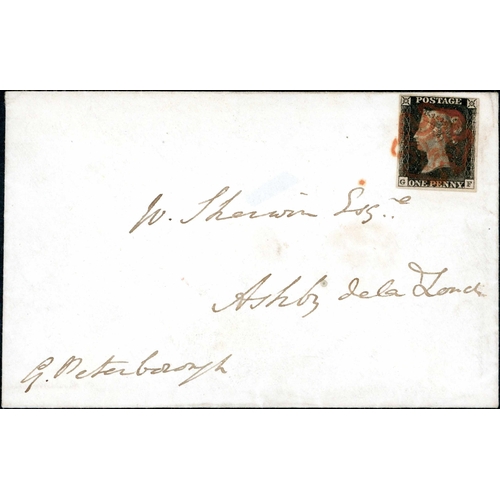 POSTAGE
G ONE PENNY F
W. Sherwin Esqre
Ashby de la Zouch
G. Peterborough